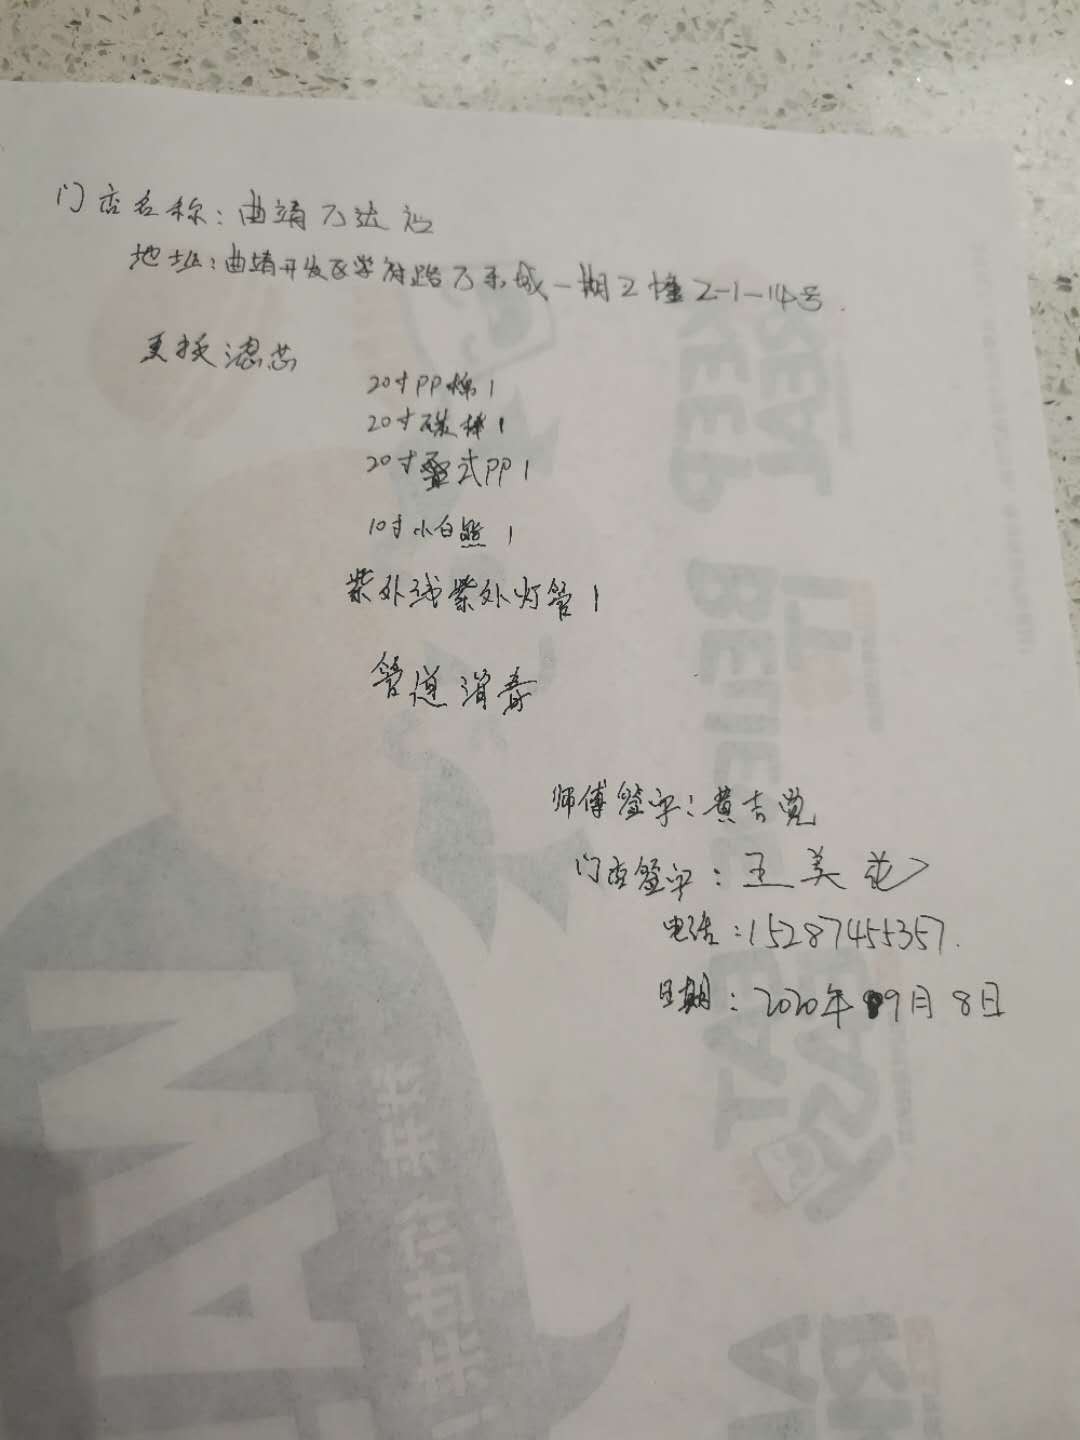 门店名称：曲靖万达店
地址：曲靖开发区学府路万禾城一期2幢2-1-14号
更换滤芯
20寸PP棉1
20寸碳棒1
20寸叠式PP1
10寸小白熊1
紫外线紫外灯管1
管道消毒
师傅签字：黄吉
门店签字：王美花
电话：15287455357.
日期：2020年9月8日